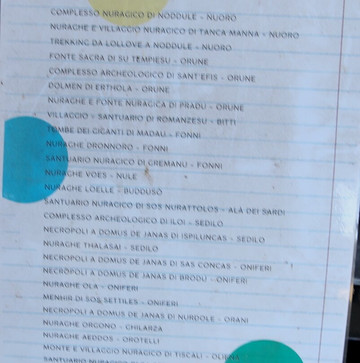 COMPLESSO NURAGICO DI NODDULE - NUORO
NURAGHE E VILLAGGIO NURAGICO DI TANCA MANNA - NUORO
TREKKING DA LOLLOVE A NODDULE - NUORO
FONTE SACRA DI SU TEMPIESU - ORUNE
COMPLESSO ARCHEOLOGICO DI SANT'EFIS - ORUNE
DOLMEN DI ERTHOLA - ORUNE
NURAGHE E FONTE NURAGICA DI PRADU - ORUNE
VILLAGGIO - SANTUARIO DI ROMANZESU - BITTI
TOMBE DEI GIGANTI DI MADAU - FONNI
NURAGHE DRONNORO - FONNI
SANTUARIO NURAGICO DI GREMANU - FONNI
NURAGHE VOES - NULE
NURAGHE LOELLE - BUDDUSÒ
SANTUARIO NURAGICO DI SOS NURATTOLOS - ALÀ DEI SARDI
COMPLESSO ARCHEOLOGICO DI ILOI - SEDILO
NECROPOLI A DOMUS DE JANAS DI ISPILUNCAS - SEDILO
NURAGHE THALASAI - SEDILO
NECROPOLI A DOMUS DE JANAS DI SAS CONCAS - ONIFERI
NECROPOLI A DOMUS DE JANAS DI BRODU - ONIFERI
NURAGHE OLA - ONIFERI
MENHIR DI SOS SETTILES - ONIFERI
NECROPOLI A DOMUS DE JANAS DI NURDOLE - ORANI
NURAGHE ORGONO - GHILARZA
NURAGHE AEDDOS - OROTELLI
MONTE E VILLAGGIO NURAGICO DI TISCALI - OLIENA
SANTUARIO NURAGICO